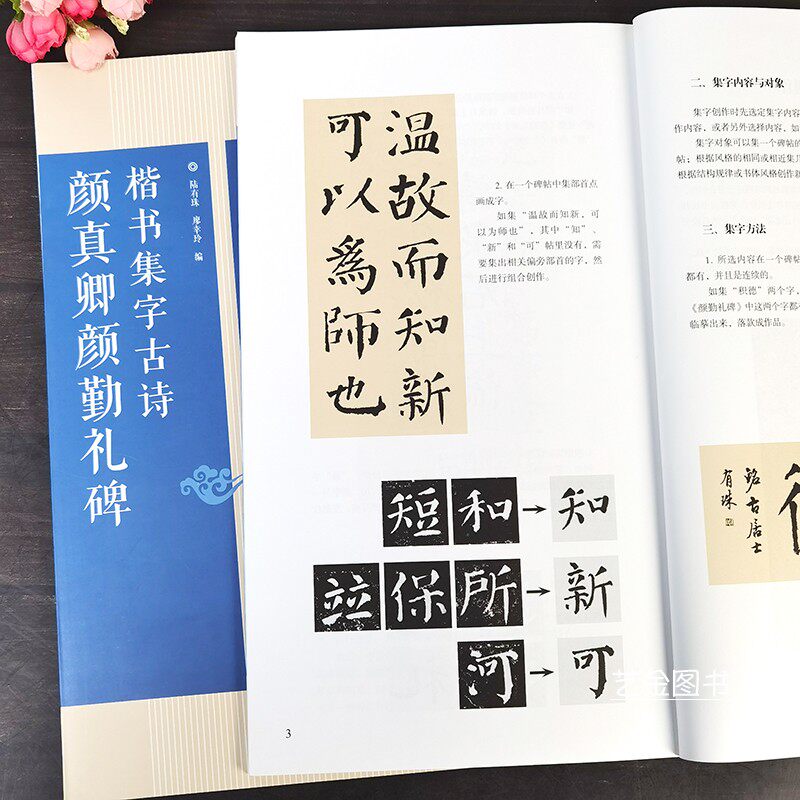 楷书集字古诗
颜真卿颜勤礼碑
◎ 陆有珠 廖幸玲 编
温故而知新
可以為師也
2. 在一个碑帖中集部首点
画成字。
如集“温故而知新，可
以为师也”，其中“知”、
“新”和“可”帖里没有，需
要集出相关偏旁部首的字，然
后进行组合创作。
短 和 → 知
竝 保 所 → 新
河 → 可
3
二、集字内容与对象
集字创作时先选定集字内容
作内容，或者另外选择内容，如
集字对象可以集一个碑帖的
帖；根据风格的相同或相近集几
根据结构规律或书体风格创作新
三、集字方法
1. 所选内容在一个碑帖
都有，并且是连续的。
如集“积德”两个字，
《颜勤礼碑》中这两个字都
临摹出来，落款成作品。
古居士
有珠
艺金图书